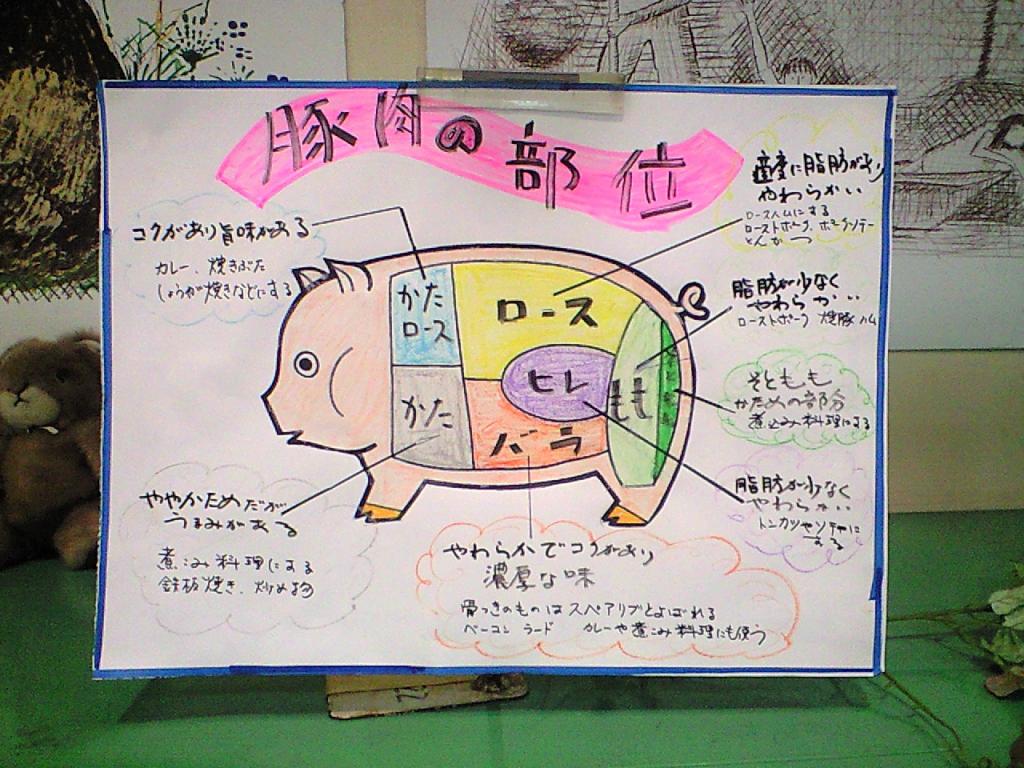 豚肉の部位
コクがあり旨味がある
カレー、焼きぶた
しょうが焼きなどにする
適度に脂肪があり
やわらかい
ロースハムにする
ローストポーク、ポークソテー
とんかつ
かた
ロース
ロース
ヒレ
もも
かた
バラ
脂肪が少なく
やわらかい
ローストポーク 焼豚 ハム
そともも
かための部分
煮込み料理にする
脂肪が少なく
やわらかい
トンカツやソテーに
する
ややかためだが
うまみがある
煮こみ料理にする
鉄板焼き、炒め物
やわらかでコクがあり
濃厚な味
骨つきのものはスペアリブとよばれる
ベーコン ラード カレーや煮こみ料理にも使う